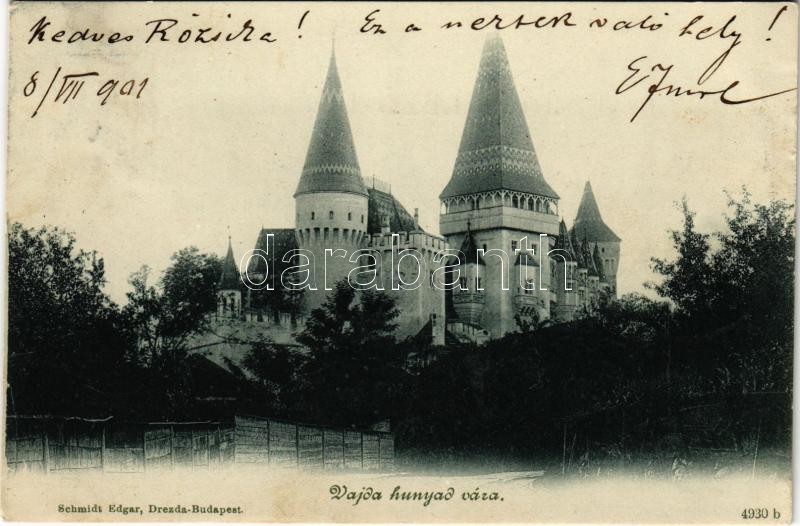 Kedves Rózsika! Ez a nektek való hely!
8/VII 901
darabanth
Vajda hunyad vára.
Schmidt Edgar, Drezda-Budapest.
4930 b